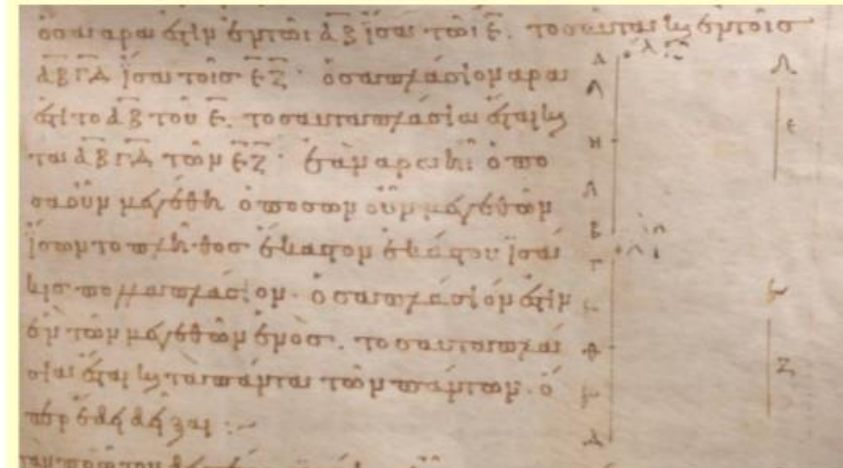 ὅσα ἄρα ἐστὶν ἐν τῶι ΑΒ ἴσα τῶι Ε, τοσαῦτα καὶ ἐν τοῖς
ΑΒ ΓΔ ἴσα τοῖς ΕΖ· ὁσαπλάσιον ἄρα
ἐστὶ τὸ ΑΒ τοῦ Ε, τοσαυταπλάσια ἔσται καὶ
τὰ ΑΒ ΓΔ τῶν ΕΖ· ἐὰν ἄρα ἦι ὁπο
σαοῦν μεγέθη ὁποσωνοῦν μεγεθῶν
ἴσων τὸ πλῆθος ἕκαστον ἑκάστου ἰσά
κις πολλαπλάσιον· ὁσαπλάσιόν ἐστιν
ἓν τῶν μεγεθῶν ἑνός, τοσαυταπλά
σια ἔσται καὶ τὰ πάντα τῶν πάντων· ὅ
περ ἔδει δεῖξαι :~
Α
Η
Β
Γ
Θ
Δ
Ε
Ζ